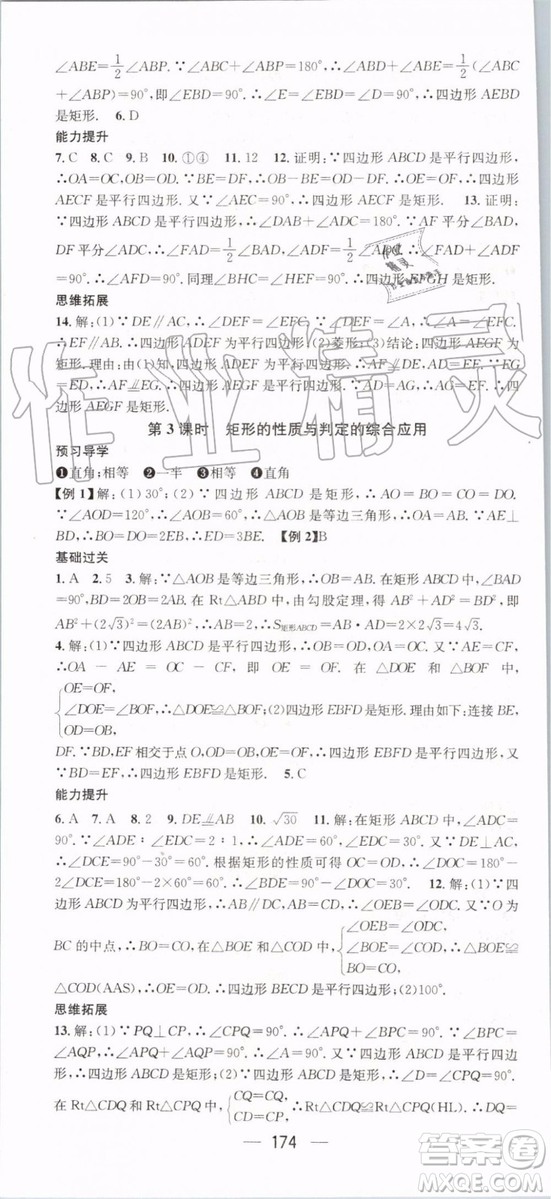 ∠ABE=1/2∠ABP.∵∠ABC+∠ABP=180°,∴∠ABD+∠ABE=1/2(∠ABC
+∠ABP)=90°,即∠EBD=90°.∴∠E=∠EBD=∠D=90°.∴四边形AEBD
是矩形. 6.D
能力提升
7.C 8.C 9.B 10.①④ 11.12 12.证明:∵四边形ABCD是平行四边形,
∴OA=OC,OB=OD.∵BE=DF,∴OB-BE=OD-DF,即OE=OF.∴四边形
AECF是平行四边形.又∵∠AEC=90°,∴四边形AECF是矩形. 13.证明:
∵四边形ABCD是平行四边形,∴∠DAB+∠ADC=180°.∵AF平分∠BAD,
DF平分∠ADC,∴∠FAD=1/2∠BAD,∠ADF=1/2∠ADC.∴∠FAD+∠ADF
=90°.∴∠AFD=90°.同理∠BHC=∠HEF=90°.∴四边形EFGH是矩形.
思维拓展
14.解:(1)∵DE∥AC,∴∠DEF=∠EFC.∵∠DEF=∠A,∴∠A=∠EFC.
∴EF∥AB.∴四边形ADEF为平行四边形;(2)菱形;(3)结论:四边形AEGF为
矩形.理由:由(1)知,四边形ADEF为平行四边形,∴AF⫽DE.又∵EG=
ED,∴AF⫽EG.∴四边形AEGF是平行四边形.∵AD=AG,EG=ED,∴AE⊥EG.
∴四边形AEGF是矩形.
第3课时 矩形的性质与判定的综合应用
预习导学
❶直角;相等 ❷一半 ❸直角;相等
【例1】解:(1)30°;(2)∵四边形ABCD是矩形,∴AO=BO=CO=DO.
∵∠AOD=120°,∴∠AOB=60°.∴△ABO是等边三角形.又∵AE⊥
BD,∴BO=2OE.∴DO=BO=2OE.∴DE=3OE. 【例2】B
基础过关
1.A 2.5 3.解:∵△AOB是等边三角形,∴OB=AB=2.在矩形ABCD中,∠BAD
=90°,BD=2OB=2AB.在Rt△ABD中,由勾股定理,得AB²+AD²=BD²,即
AB²+(2√3)²=(2AB)²,∴AB=2.∴S矩形ABCD=AB·AD=2×2√3=4√3.
4.解:(1)∵四边形ABCD是矩形,∴OB=OD,OA=OC.又∵AE=CF,
∴OA-AE=OC-CF,即OE=OF.在△DOE和△BOF中,
{OE=OF,
∠DOE=∠BOF,∴△DOE≌△BOF;(2)四边形EBFD是矩形.理由如下:连接BE,
OD=OB,
DF.∵BD、EF相交于点O,OD=OB,OE=OF,∴四边形EBFD是平行四边形.又∵
BD=EF,∴四边形EBFD是矩形. 5.C
能力提升
6.A 7.A 8.A 9.DE⫽AB 10.√30 11.解:在矩形ABCD中,∠ADC=
90°.∵∠ADE∶∠EDC=2∶1,∴∠ADE=60°,∠EDC=30°.又∵DE⊥AC,
∴∠DCE=90°-30°=60°.根据矩形的性质可得OC=OD,∴∠DOC=180°-
2∠DCE=180°-2×60°=60°,∴∠BDE=90°-∠DOC=30°. 12.解:(1)∵四
边形ABCD为平行四边形,∴AB∥DC,∴∠OEB=∠ODC.又∵O为
BC的中点,∴BO=CO.在△BOE和△COD中,{∠OEB=∠ODC,∠BOE=∠COD,BO=CO,∴△BOE≌
△COD(AAS),∴OE=OD.∴四边形BECD是平行四边形;(2)100°.
思维拓展
13.解:(1)∵PQ⊥CP,∴∠CPQ=90°.∴∠APQ+∠BPC=90°.∵∠A=90°,
∴∠AQP+∠APQ=90°.∴∠AQP=∠BPC.又∵∠BPC=∠AQP,∴∠BPC=
∠AQP,∴∠APQ=60°;(2)∵∠CPQ=90°,∴∠D=∠CPQ=90°.
在Rt△CDQ和Rt△CPQ中,{CQ=CQ,CD=CP,∴Rt△CDQ≌Rt△CPQ(HL).∴DQ=
174
作业精灵
作业精灵
答案圈
MXQE.COM